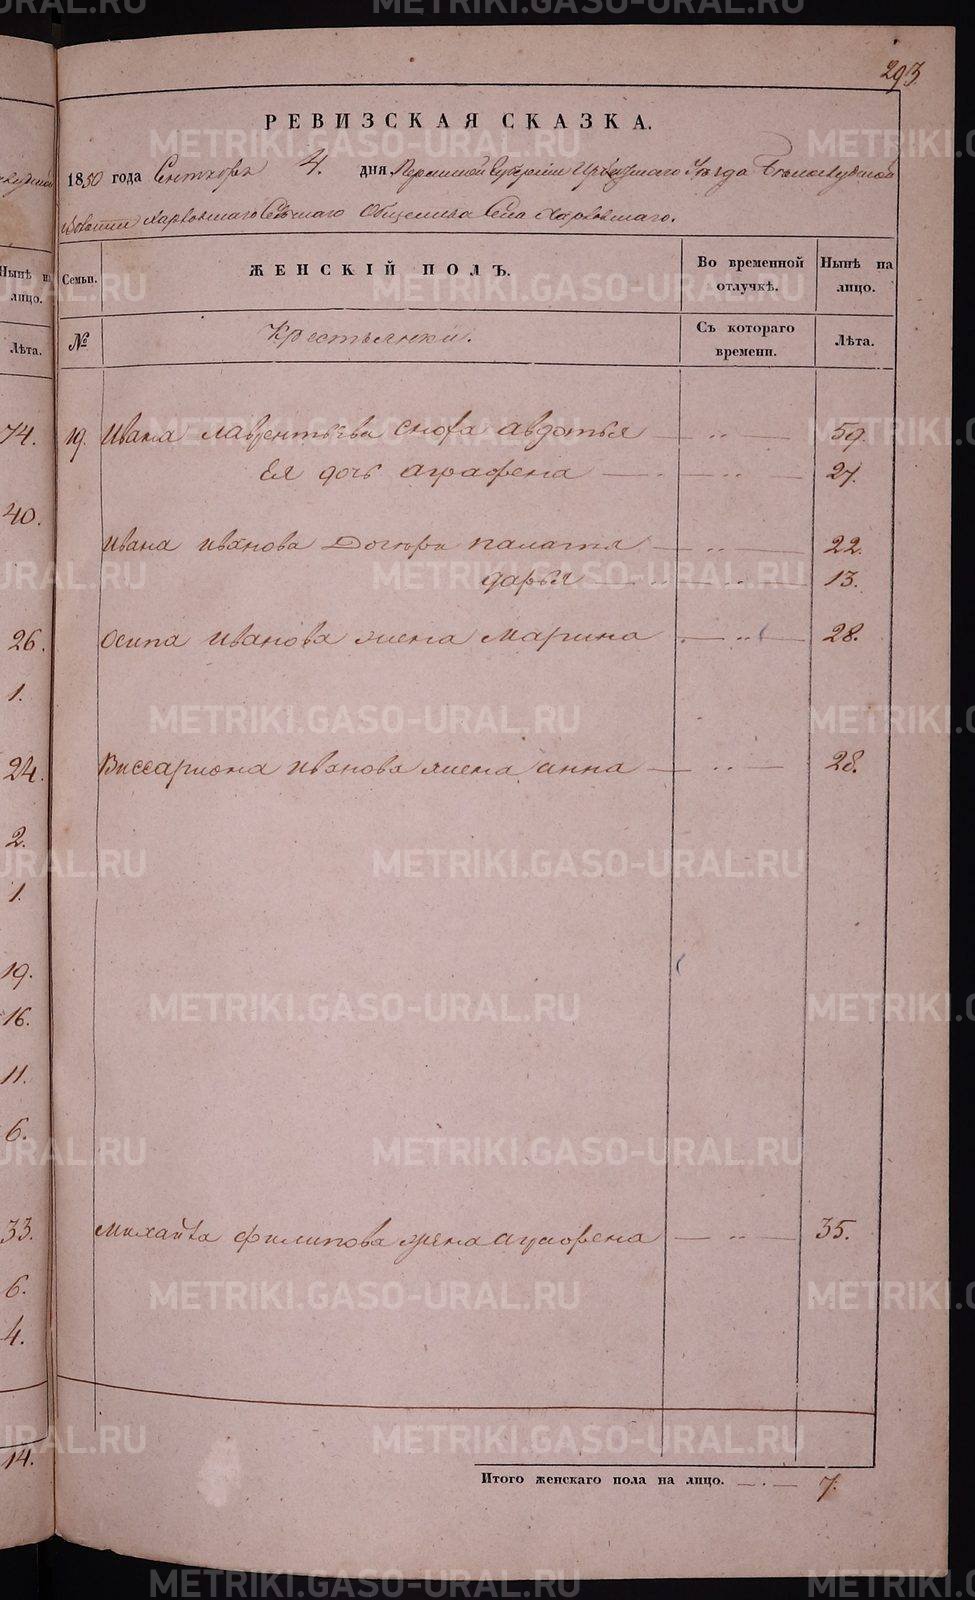 293.
РЕВИЗСКАЯ СКАЗКА.
1850 года Сентября 4. дня Пермской Губернии Ирбитскаго Уѣзда Бѣлослудской
волости Харловскаго Сельскаго Общества Села Харловскаго.
Семьи. ЖЕНСКІЙ ПОЛЪ. Во временной отлучкѣ. Нынѣ на лицо.
№ Крестьянки. Съ котораго времени. Лѣта.
19. Ивана Лаврентьева сноха авдотья 59.
Ея дочь аграфена 27.
Ивана иванова Дочери палагия 22.
дарья 13.
осипа иванова жена марина 28.
Виссариона иванова жена анна 28.
михайла филипова жена аграфена 35.
Итого женскаго пола на лицо. 7.
Нынѣ на лицо.
Лѣта.
74.
40.
26.
1.
24.
2.
1.
19.
16.
11.
6.
33.
6.
4.
14.
METRIKI.GASO-URAL.RU